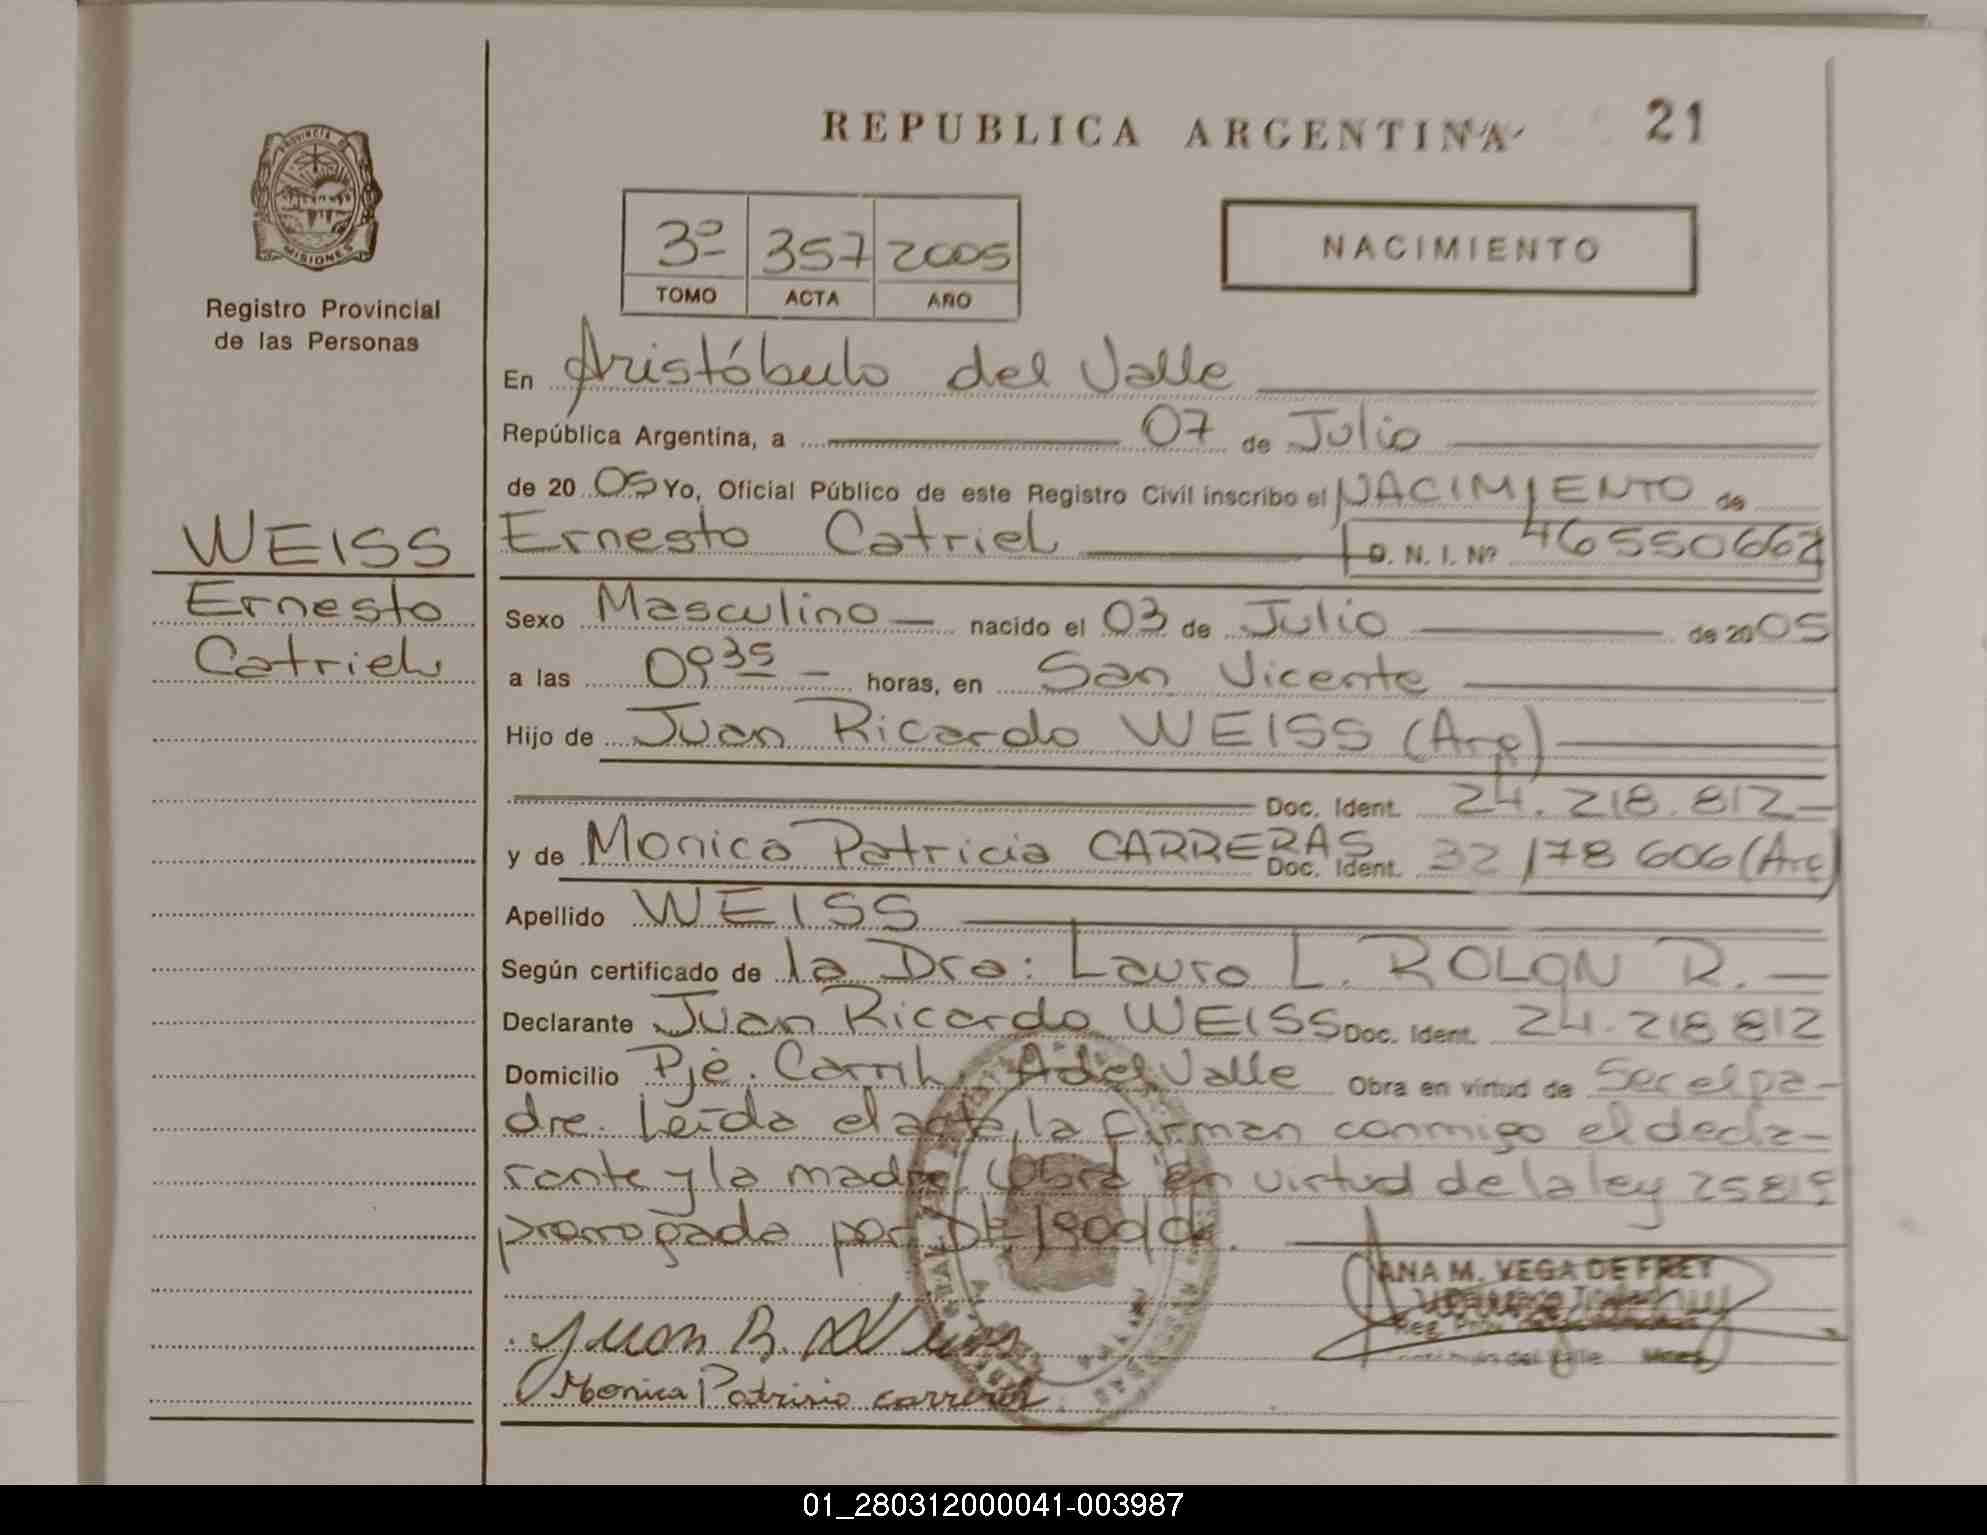 REPUBLICA ARGENTINA
21
PROVINCIA DE
MISIONES
Registro Provincial
de las Personas
3º 357 2005
TOMO ACTA AÑO
NACIMIENTO
En Aristóbulo del Valle
República Argentina, a 07 de Julio
de 20 05 Yo, Oficial Público de este Registro Civil inscribo el NACIMIENTO de
WEISS
Ernesto
Catriel
Ernesto Catriel D. N. I. Nº 46550662
Sexo Masculino nacido el 03 de Julio de 2005
a las 09 35 horas, en San Vicente
Hijo de Juan Ricardo WEISS (Arg)
Doc. Ident. 24.218.812
y de Monica Patricia CARRERAS Doc. Ident. 32 178 606 (Arg)
Apellido WEISS
Según certificado de la Dra: Laura L. ROLON R.
Declarante Juan Ricardo WEISS Doc. Ident. 24.218 812
Domicilio Pje. Carril A del Valle Obra en virtud de Ser el pa-
dre. Leída el acta, la firman conmigo el decla-
rante y la madre. Obra en virtud de la ley 25819
prorrogada por
ANA M. VEGA DE FRET
del Valle
Juan R. Weiss
Monica Patrisia carreras
01_280312000041-003987